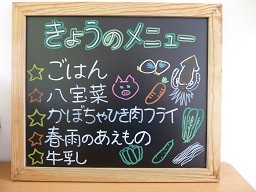 きょうのメニュー
ごはん
八宝菜
かぼちゃひき肉フライ
春雨のあえもの
牛乳